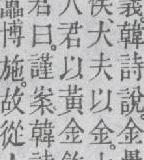 義。韓詩說。金
侯大夫以金。
人君以黃金
君曰。謹案韓
罍博施。故從